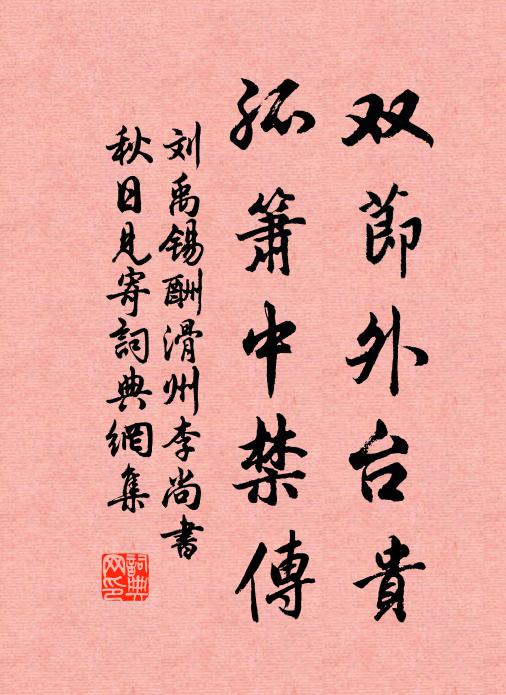 双節外台貴
孤簫中禁傳
刘禹锡酬滑州李尚書
秋日見寄詞典網集
詞典網印